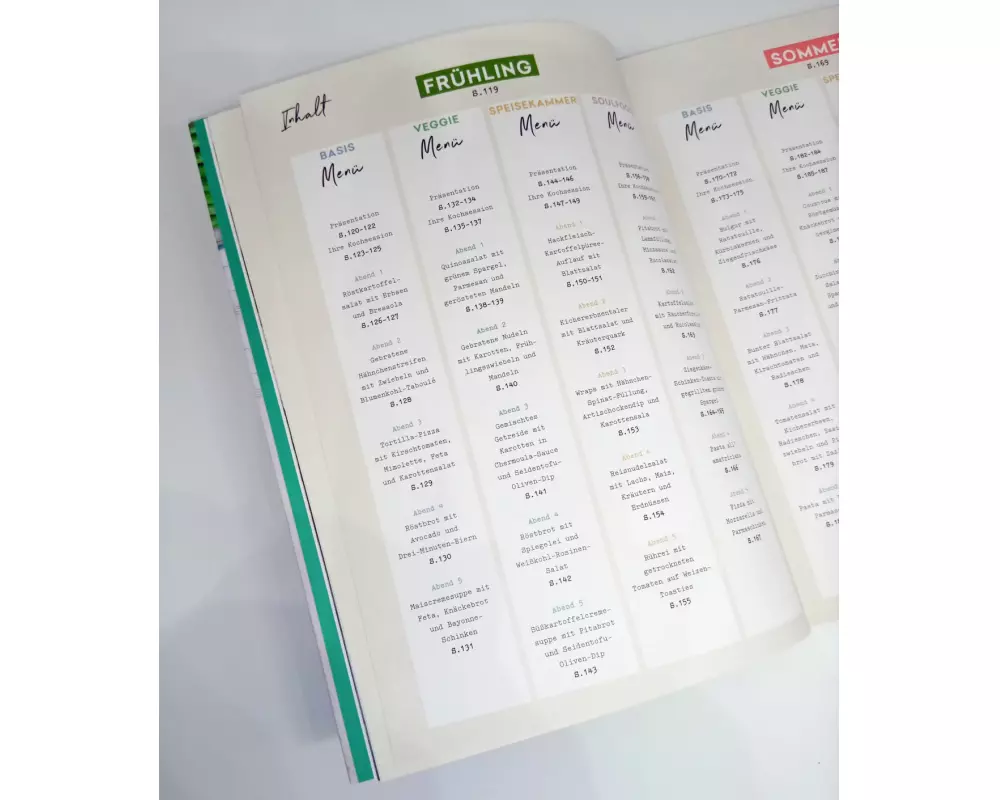 Inhalt
FRÜHLING
S.119
BASIS
Menü
Präsentation
S.120-122
Ihre Kochsession
S.123-125
Abend 1
Röstkartoffel-
salat mit Erbsen
und Bresaola
S.126-127
Abend 2
Gebratene
Hähnchenstreifen
mit Zwiebeln und
Blumenkohl-Taboulé
S.128
Abend 3
Tortilla-Pizza
mit Kirschtomaten,
Mimolette, Feta
und Karottensalat
S.129
Abend 4
Röstbrot mit
Avocado und
Drei-Minuten-Eiern
S.130
Abend 5
Maiscremesuppe mit
Feta, Knäckebrot
und Bayonne-
Schinken
S.131
VEGGIE
Menü
Präsentation
S.132-134
Ihre Kochsession
S.135-137
Abend 1
Quinoasalat mit
grünem Spargel,
Parmesan und
gerösteten Mandeln
S.138-139
Abend 2
Gebratene Nudeln
mit Karotten, Früh-
lingszwiebeln und
Mandeln
S.140
Abend 3
Gemischtes
Getreide mit
Karotten in
Charmoula-Sauce
und Seidentofu-
Oliven-Dip
S.141
Abend 4
Röstbrot mit
Spiegelei und
Weißkohl-Rosinen-
Salat
S.142
Abend 5
Süßkartoffelcreme-
suppe mit Pitabrot
und Seidentofu-
Oliven-Dip
S.143
SPEISEKAMMER
Menü
Präsentation
S.144-146
Ihre Kochsession
S.147-149
Abend 1
Hackfleisch-
Kartoffelpüree-
Auflauf mit
Blattsalat
S.150-151
Abend 2
Kichererbsentaler
mit Blattsalat und
Kräuterquark
S.152
Abend 3
Wraps mit Hähnchen-
Spinat-Füllung,
Artischockendip und
Karottensala
S.153
Abend 4
Reisnudelsalat
mit Lachs, Mais,
Kräutern und
Erdnüssen
S.154
Abend 5
Rührei mit
getrockneten
Tomaten auf Weizen-
Toasties
S.155
Menü
Präsentation
Ihre Kochsession
Abend 1
Pitabrot mit
Abend 2
S.165
Abend 3
Spargel
Abend 4
Pasta all'
S.166
Abend 5
Pizza mit
Mozzarella und
Parmaschinken
S.167
SOMME
S.169
BASIS
Menü
Präsentation
S.170-172
Ihre Kochsession
S.173-175
Abend 1
Bulgur mit
Ratatouille,
Kürbiskernen und
Ziegenfrischkäse
S.176
Abend 2
Ratatouille-
Parmesan-Frittata
S.177
Abend 3
Bunter Blattsalat
mit Hähnchen, Mais,
Kirschtomaten und
Radieschen
S.178
Abend 4
Tomatensalat mit
Kichererbsen,
Radieschen,
Zwiebeln und
brot mit
S.179
Abend
Pasta mit
Parmesan
VEGGIE
Menü
Präsentation
S.182-184
Ihre Kochsession
S.185-187
Abend 1
Couscous mit
Abend 2